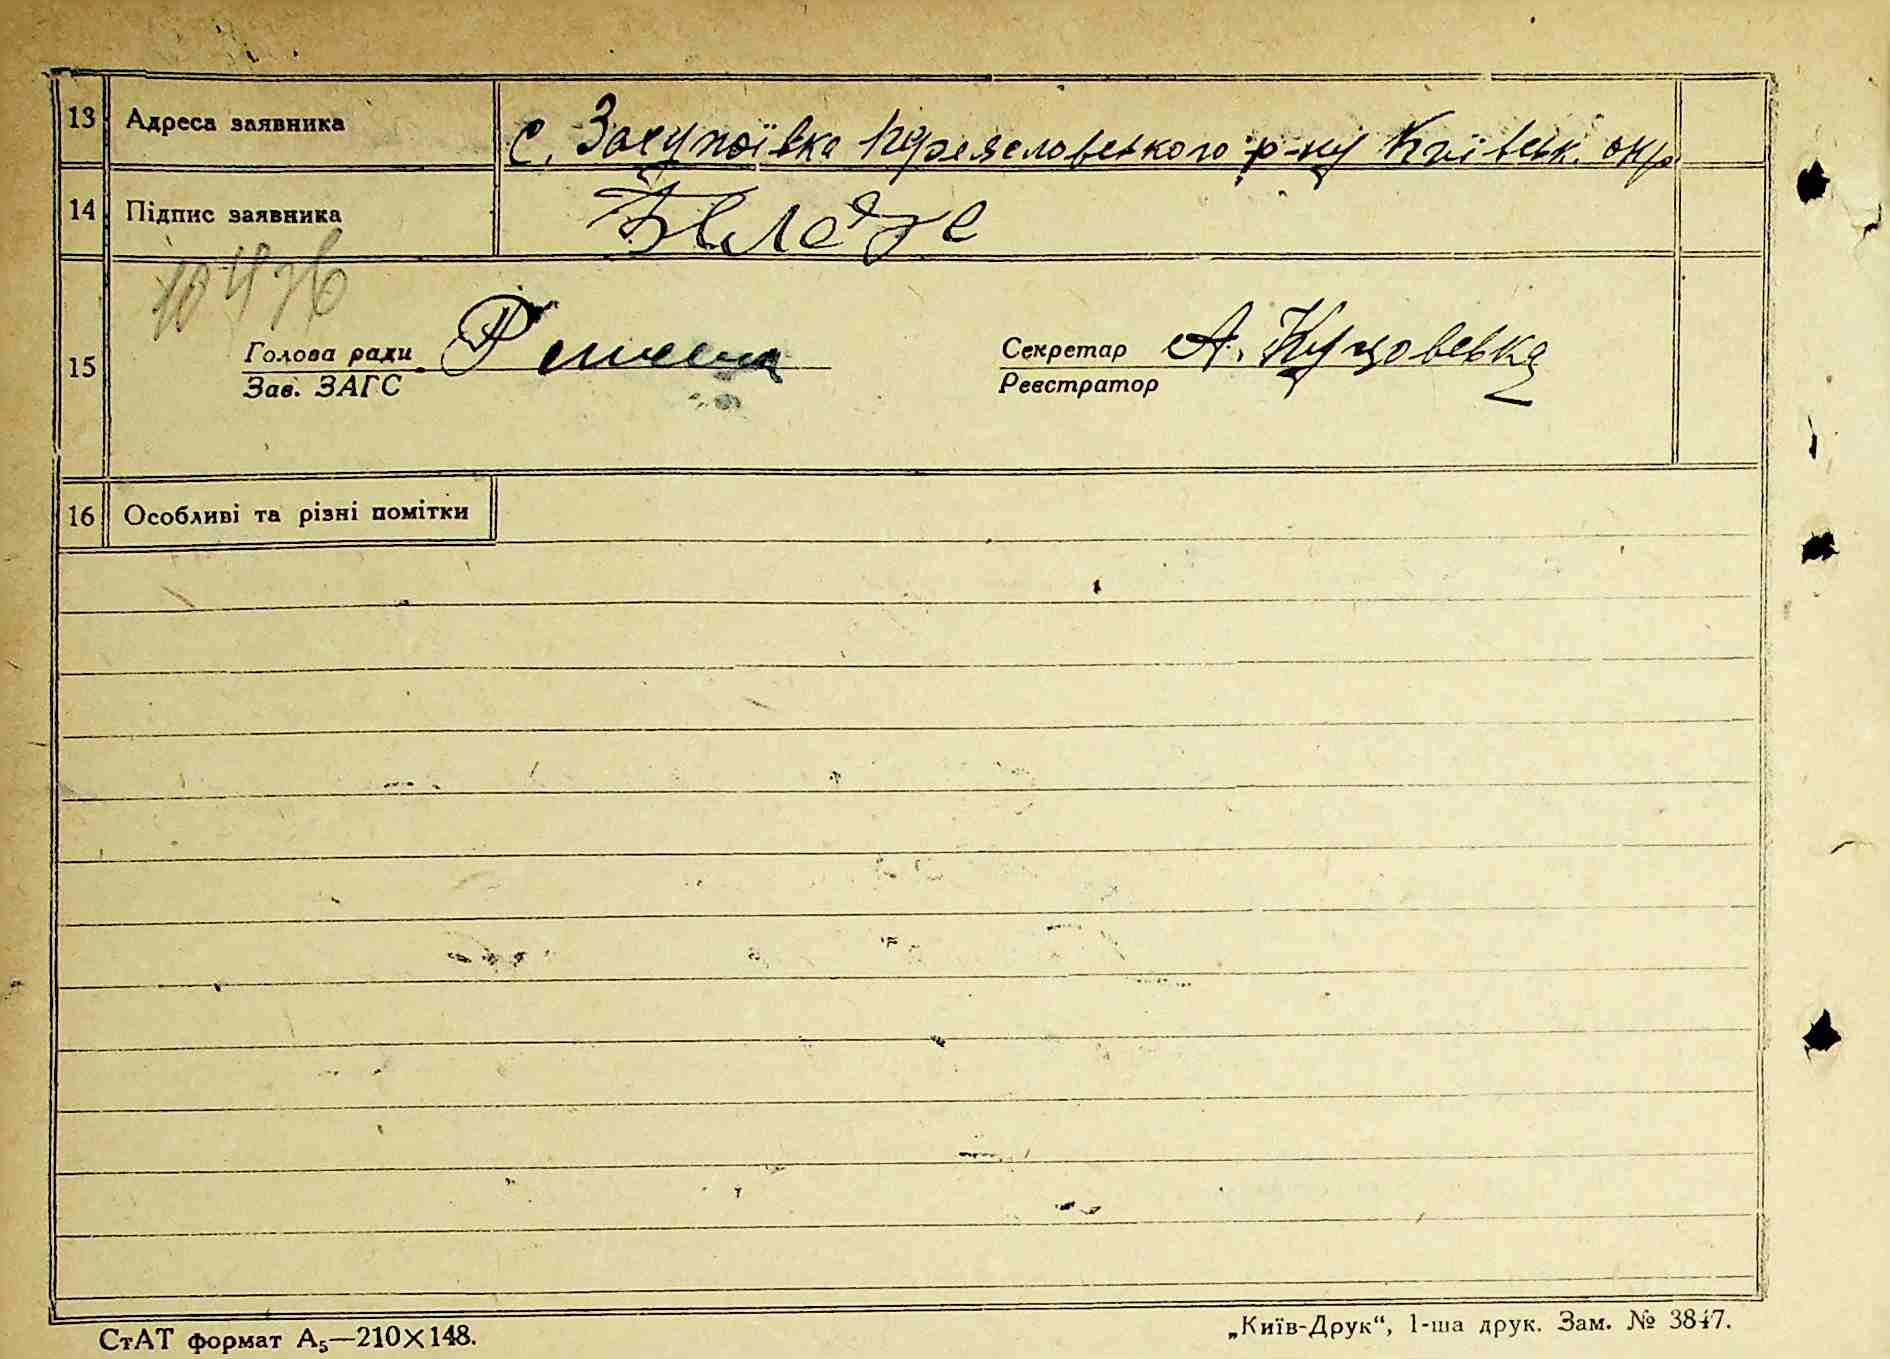 13 Адреса заявника с. Засупоївка Переяславського р-ну Київськ. окр
14 Підпис заявника
15
Голова ради Секретар А.
Зав. ЗАГС Реєстратор
16 Особливі та різні помітки
СтАТ формат А5—210×148. „Київ-Друк“, 1-ша друк. Зам. № 3847.